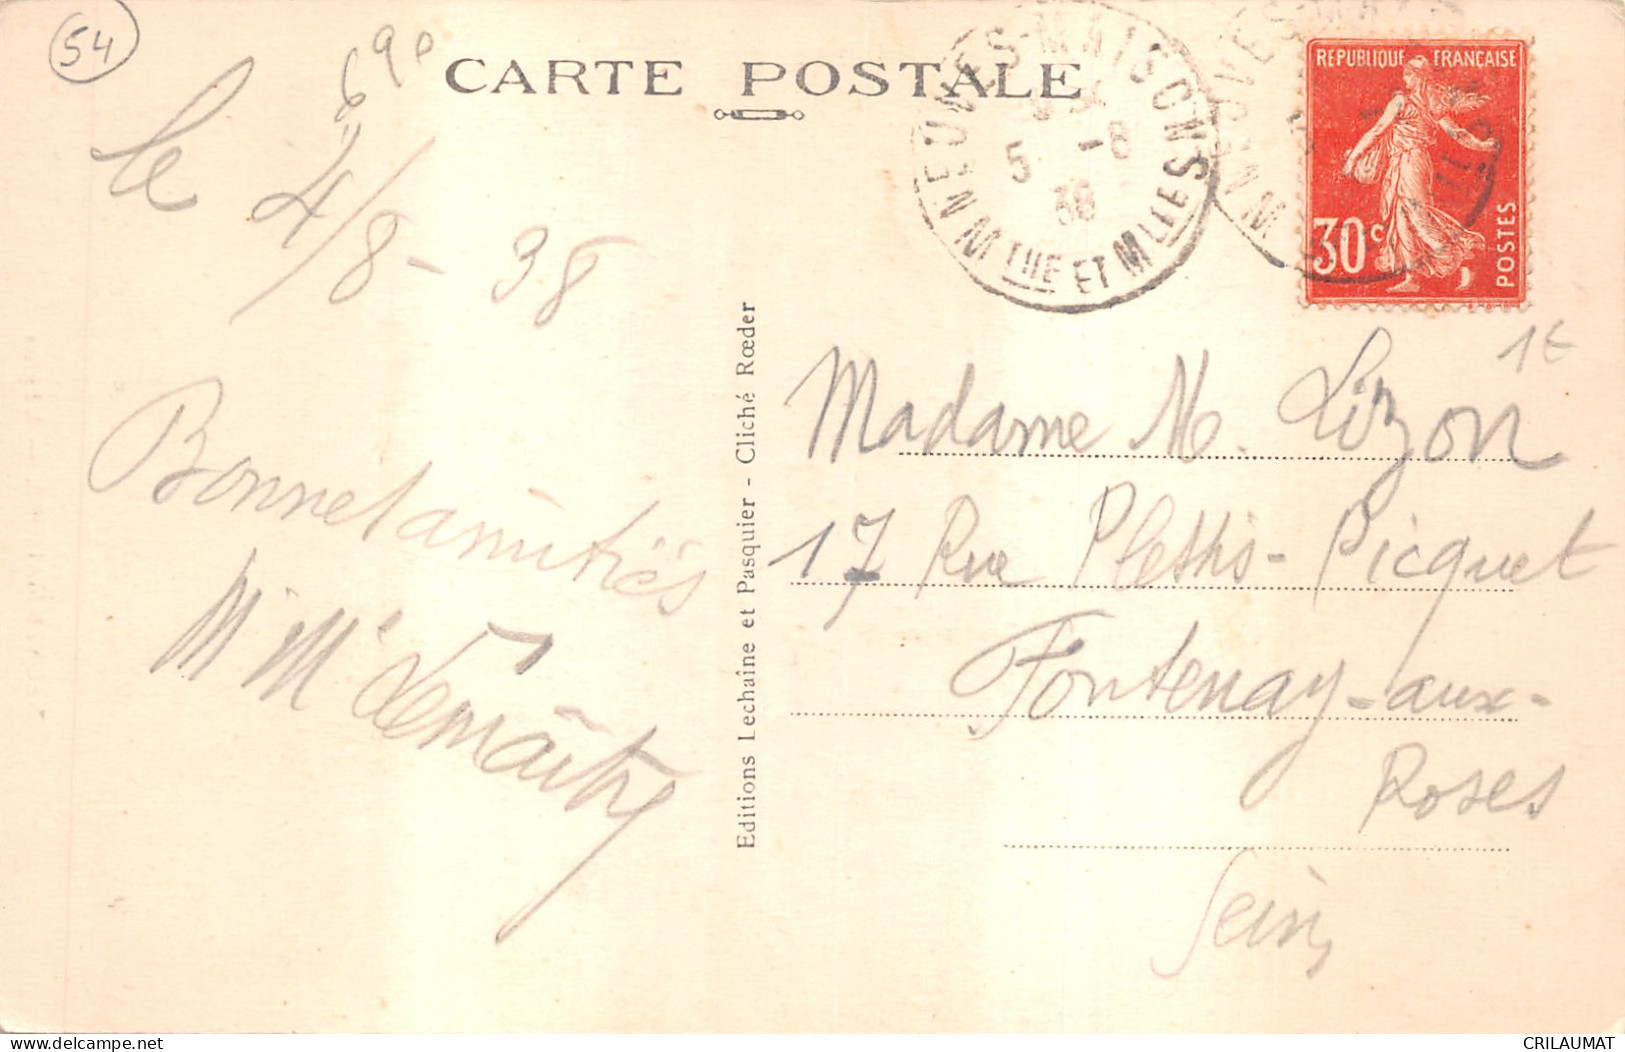 54
690
CARTE POSTALE
NEUVES-MAISONS
5 -8
38
MTHE ET MLLE
REPUBLIQUE FRANÇAISE
30c
POSTES
le 4/8-38
1€
Bonnes amitiés
M Me Lemaître
Editions Lechaîne et Pasquier - Cliché Rœder
Madame M. Lizon
17 Rue Plessis-Picquet
Fontenay-aux-
Roses
Seine
delcampe.net
CRILAUMAT